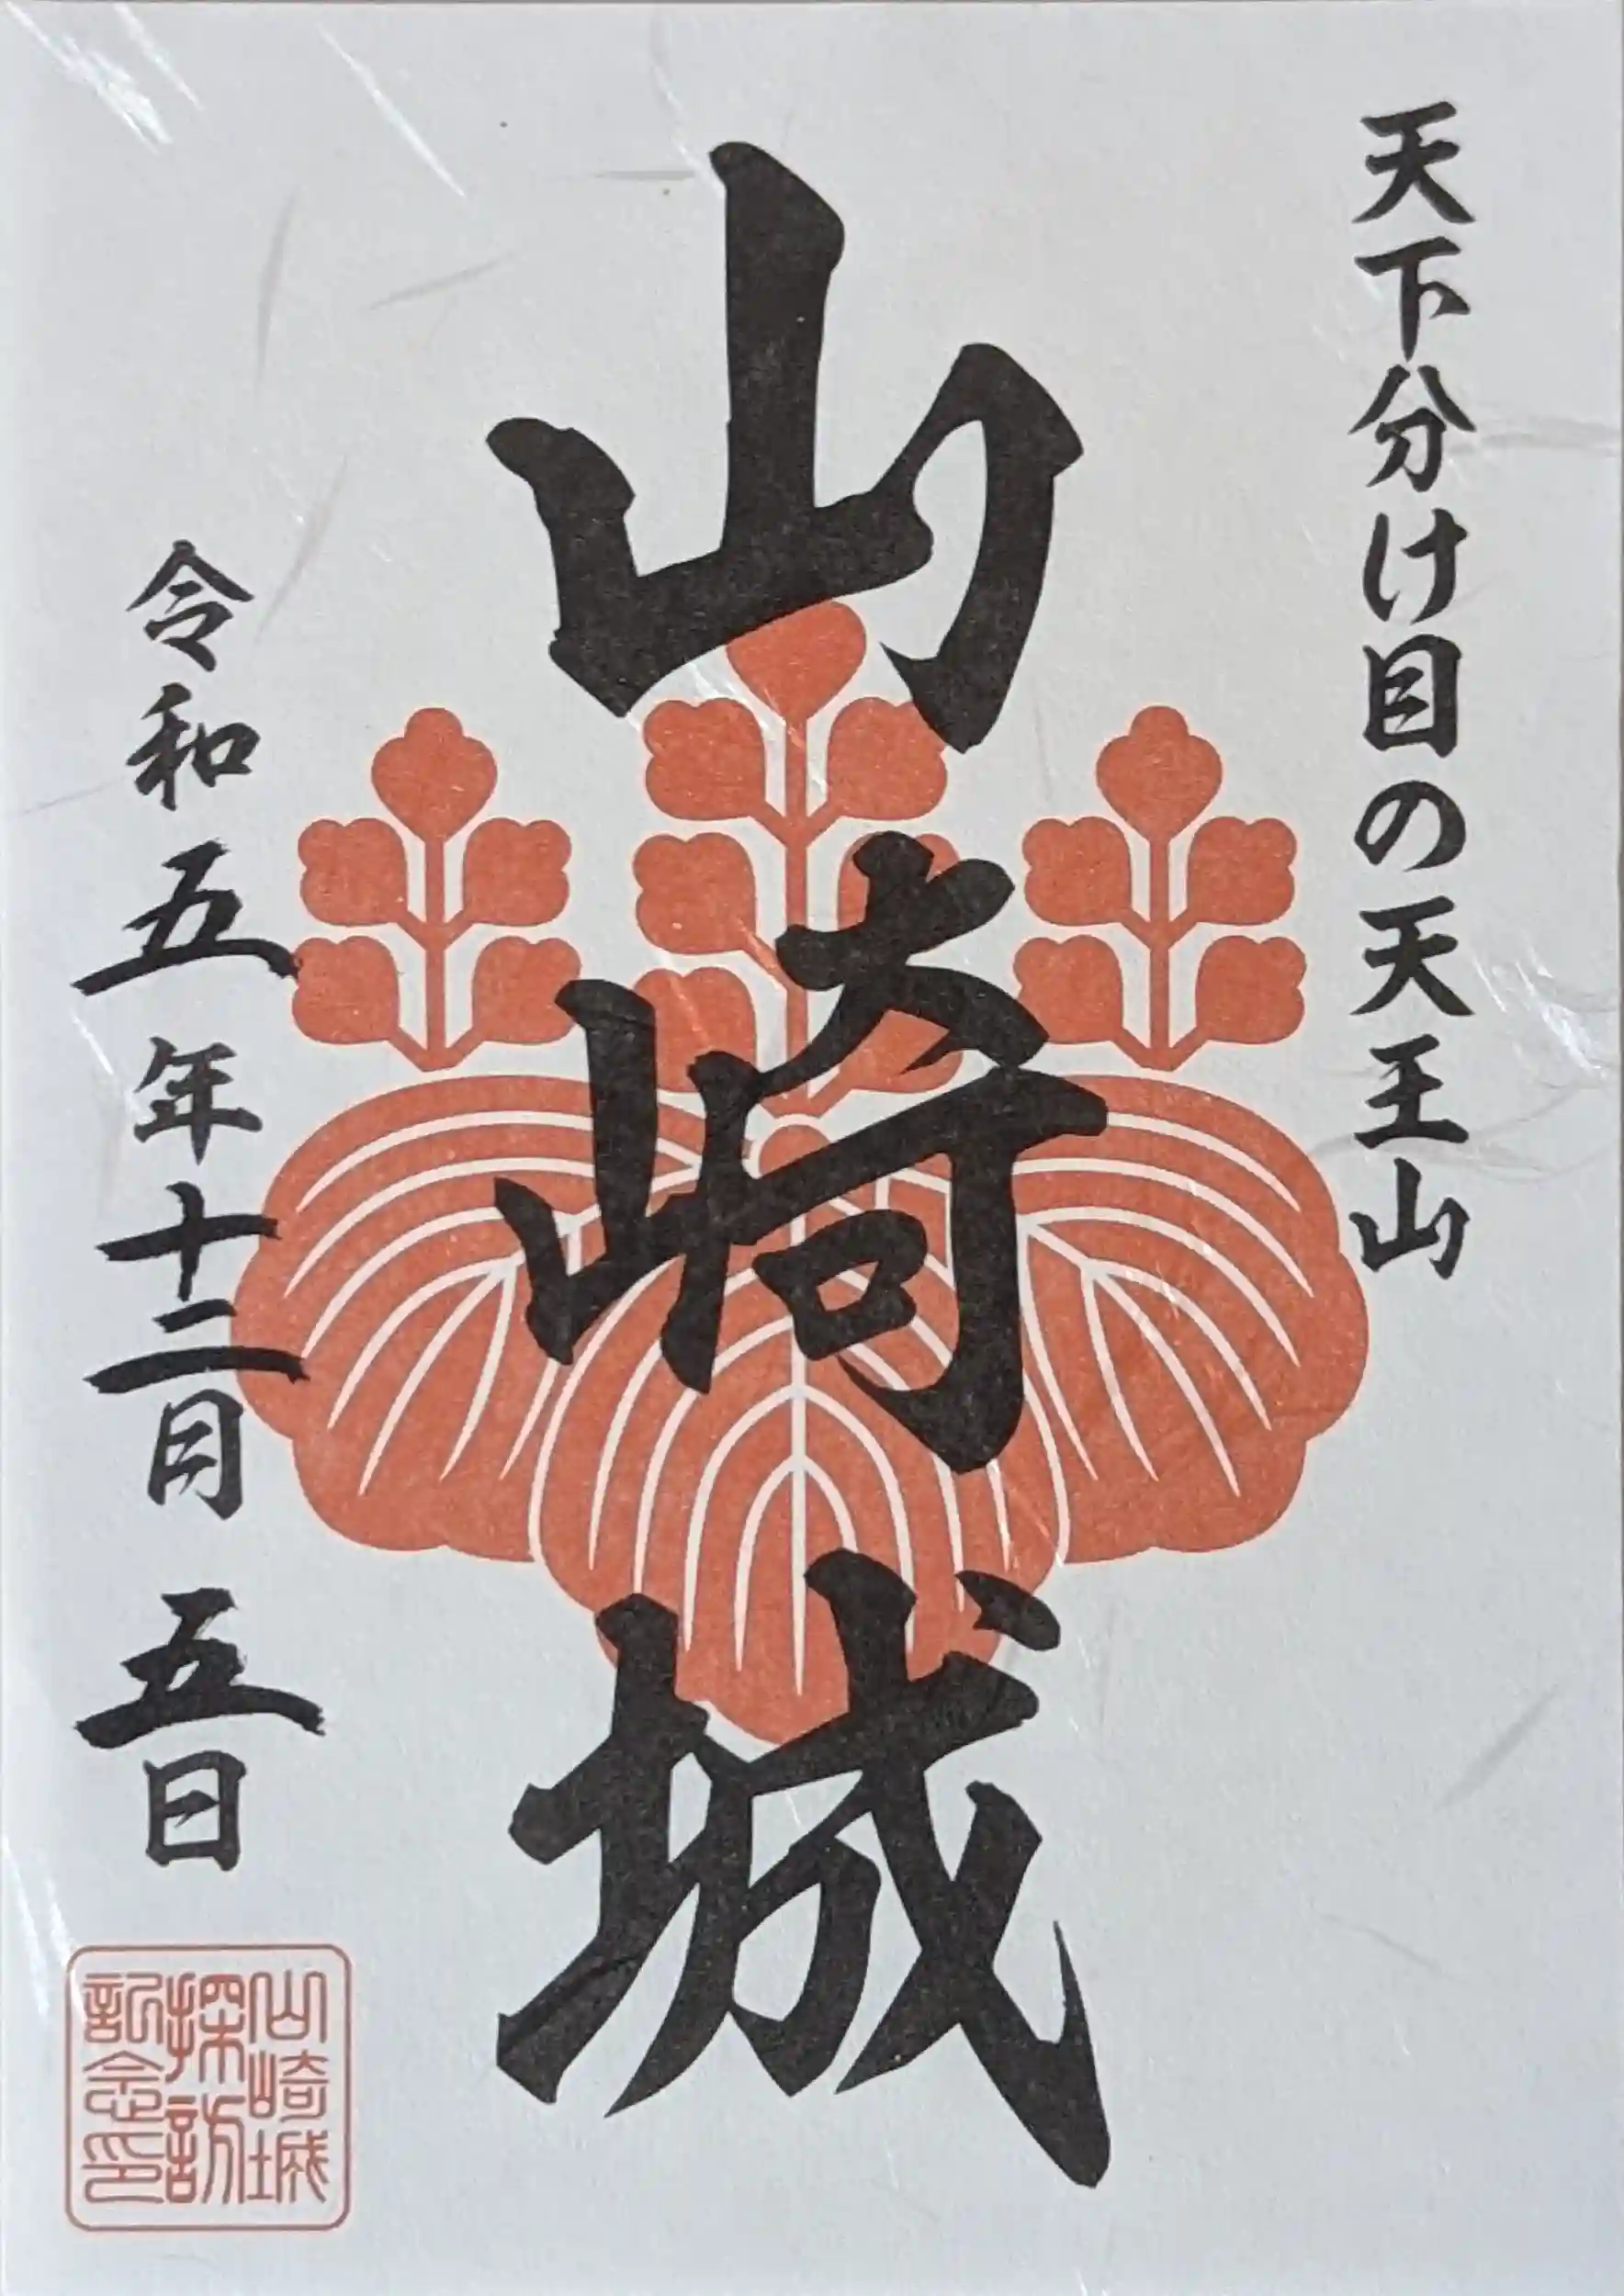 天下分け目の天王山
山崎城
令和五年十二月五日
山崎城
探訪
記念印